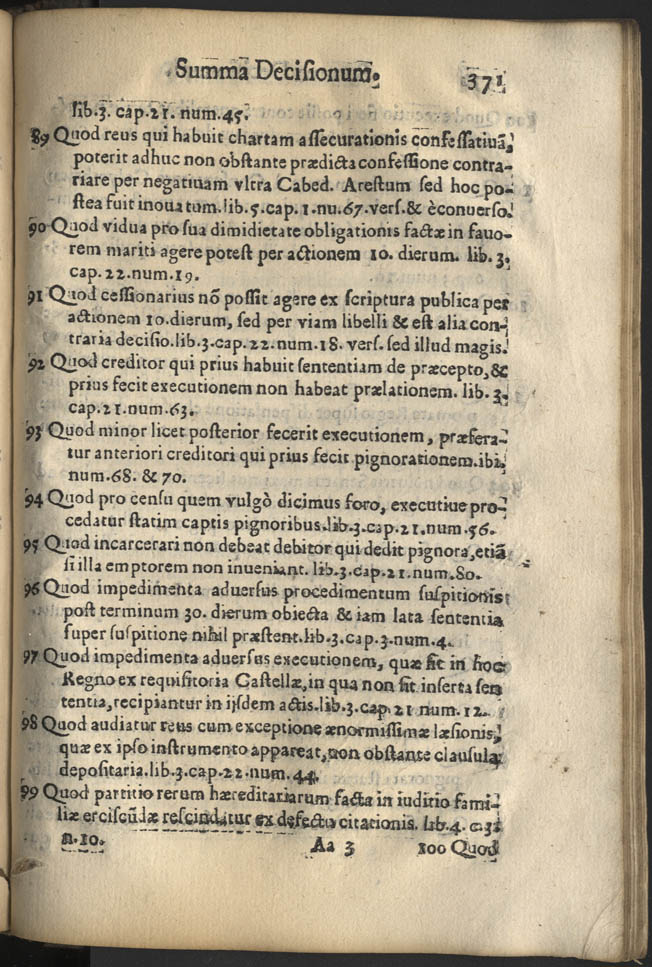 Summa Decisionum. 371
lib.3. cap.21. num.45.
89 Quod reus qui habuit chartam assecurationis confessativã,
poterit adhuc non obstante prædicta confessione contra-
riare per negatiuam vltra Cabed. Arestum sed hoc po-
stea fuit inouatum.lib.5.cap.1.nu.67.vers.& èconuerso.
90 Quod vidua pro sua dimidietate obligationis factæ in fauo-
rem mariti agere potest per actionem 10. dierum. lib. 3.
cap.22.num.19.
91 Quod cessionarius nõ possit agere ex scriptura publica per
actionem 10.dierum, sed per viam libelli & est alia con-
traria decisio.lib.3.cap.22.num.18. vers. sed illud magis.
92 Quod creditor qui prius habuit sententiam de præcepto, &
prius fecit executionem non habeat prælationem. lib. 3.
cap.21.num.63.
93 Quod minor licet posterior fecerit executionem, præfera-
tur anteriori creditori qui prius fecit pignorationem.ibi,
num.68. & 70.
94 Quod pro censu quem vulgò dicimus foro, executiue pro-
cedatur statim captis pignoribus.lib.3.cap.21.num.56.
95 Quod incarcerari non debeat debitor qui dedit pignora, etiã
si illa emptorem non inueniant. lib.3.cap.21.num.80.
96 Quod impedimenta aduersus procedimentum suspitionis
post terminum 30. dierum obiecta & iam lata sententia
super suspitione nihil præstent.lib.3.cap.3.num.4.
97 Quod impedimenta aduersus executionem, quæ fit in hoc
Regno ex requisitoria Castellæ, in qua non sit inserta sen
tentia, recipiantur in ijsdem actis.lib.3.cap.21 num.12.
98 Quod audiatur reus cum exceptione ænormissimæ læsionis,
quæ ex ipso instrumento appareat, non obstante clausula
depositaria.lib.3.cap.22.num.44.
99 Quod partitio rerum hæreditariarum facta in iuditio fami-
liæ erciscũdæ rescindatur ex defectu citationis. lib.4. c.3.
n.10. Aa 3 100 Quod